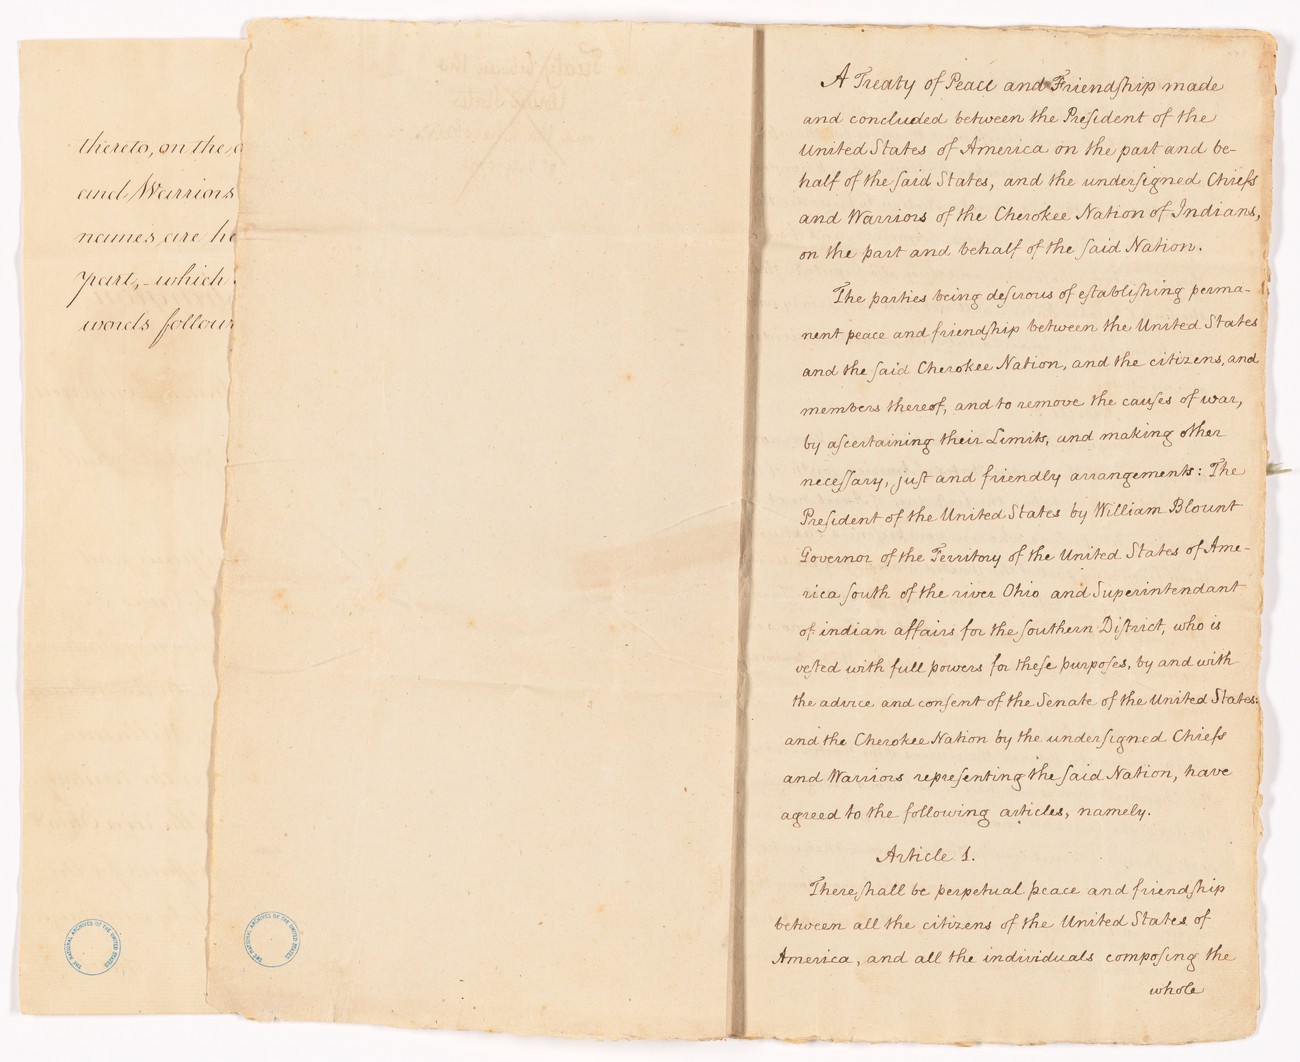 thereto, on the
and Warriors
names are he
part, - which
words follow
THE NATIONAL ARCHIVES OF THE UNITED STATES
THE NATIONAL ARCHIVES OF THE UNITED STATES
A Treaty of Peace and Friendship made
and concluded between the President of the
United States of America on the part and be-
half of the said States, and the undersigned Chiefs
and Warriors of the Cherokee Nation of Indians,
on the part and behalf of the said Nation.
The parties being desirous of establishing perma-
nent peace and friendship between the United States
and the said Cherokee Nation, and the citizens, and
members thereof, and to remove the causes of war,
by ascertaining their Limits, and making other
necessary, just and friendly arrangements: The
President of the United States by William Blount
Governor of the Territory of the United States of Ame-
rica south of the river Ohio and Superintendant
of indian affairs for the southern District, who is
vested with full powers for these purposes, by and with
the advice and consent of the Senate of the United States:
and the Cherokee Nation by the undersigned Chiefs
and Warriors representing the said Nation, have
agreed to the following articles, namely.
Article 1.
There shall be perpetual peace and friendship
between all the citizens of the United States of
America, and all the individuals composing the
whole